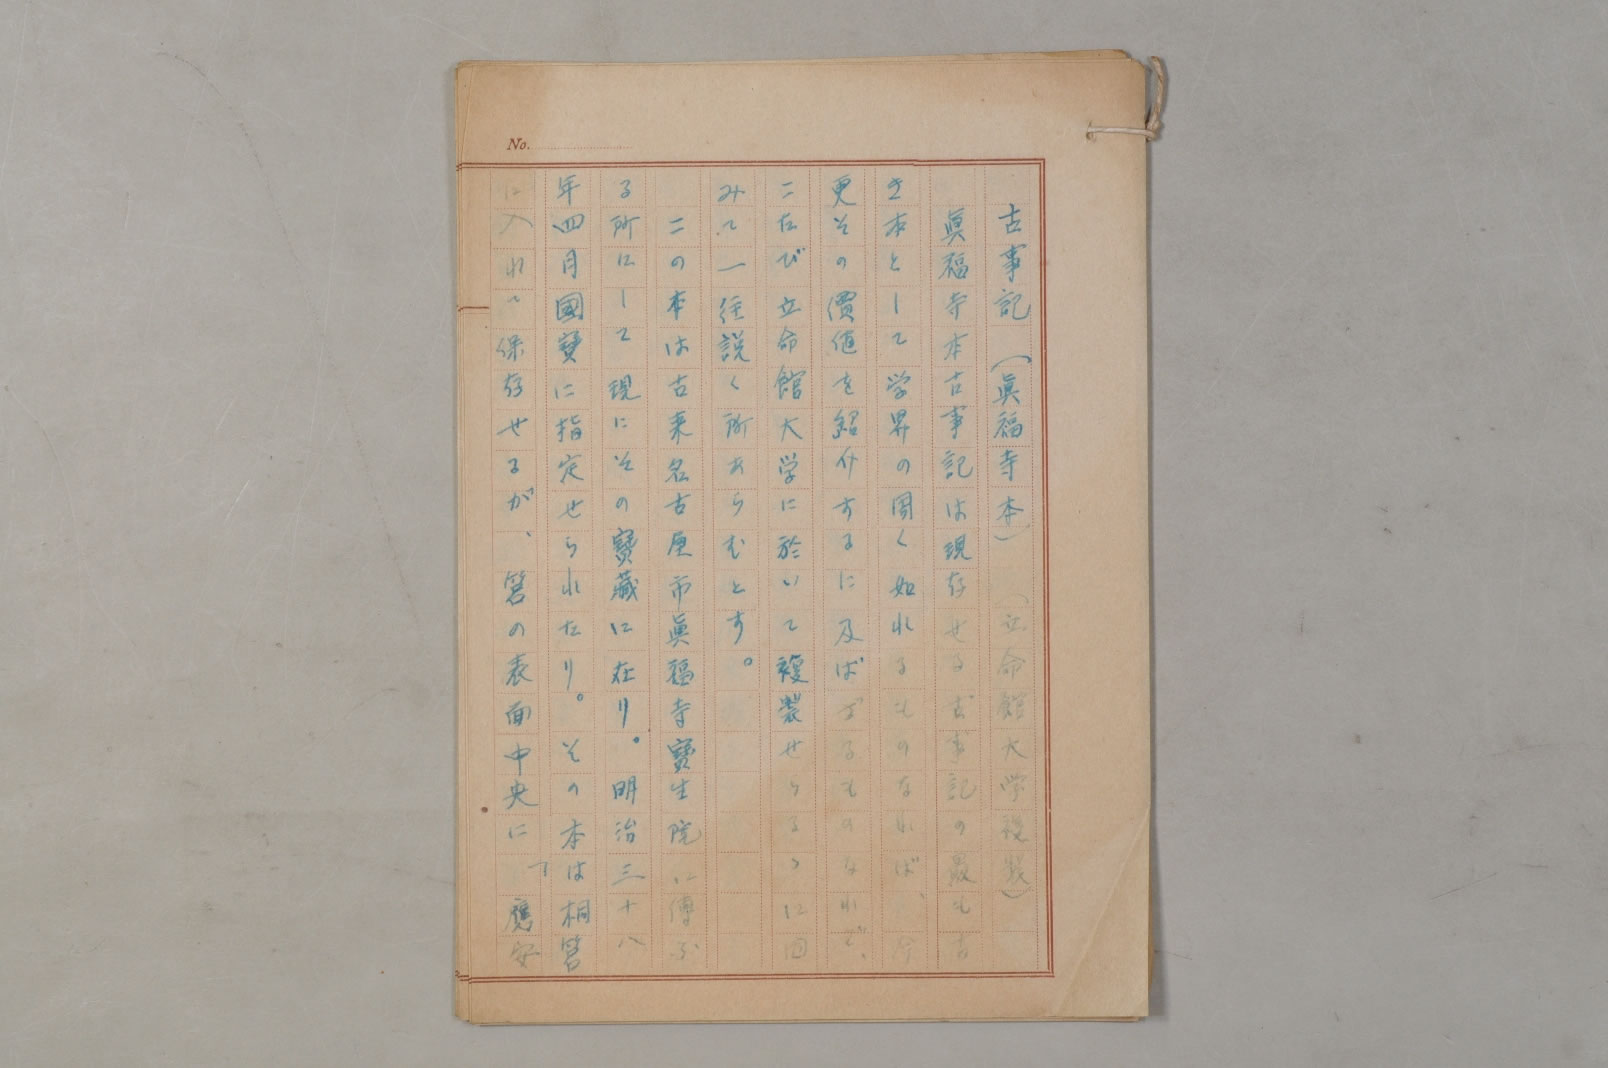 No.
古事記　（眞福寺本）　（立命館大学複製）
眞福寺本古事記は現存せる古事記の最も古
き本として学界の周く知れるものなれば、今
更その價値を紹介するに及ばざるものなれど、
こたび立命館大学に於いて複製せらるゝに因
みて一往説く所あらむとす。
この本は古来名古屋市眞福寺寶生院に傳ふ
る所にして現にその寶藏に在り。明治三十八
年四月國寶に指定せられたり。その本は桐筥
に入れて保存せるが、筥の表面中央に「應安